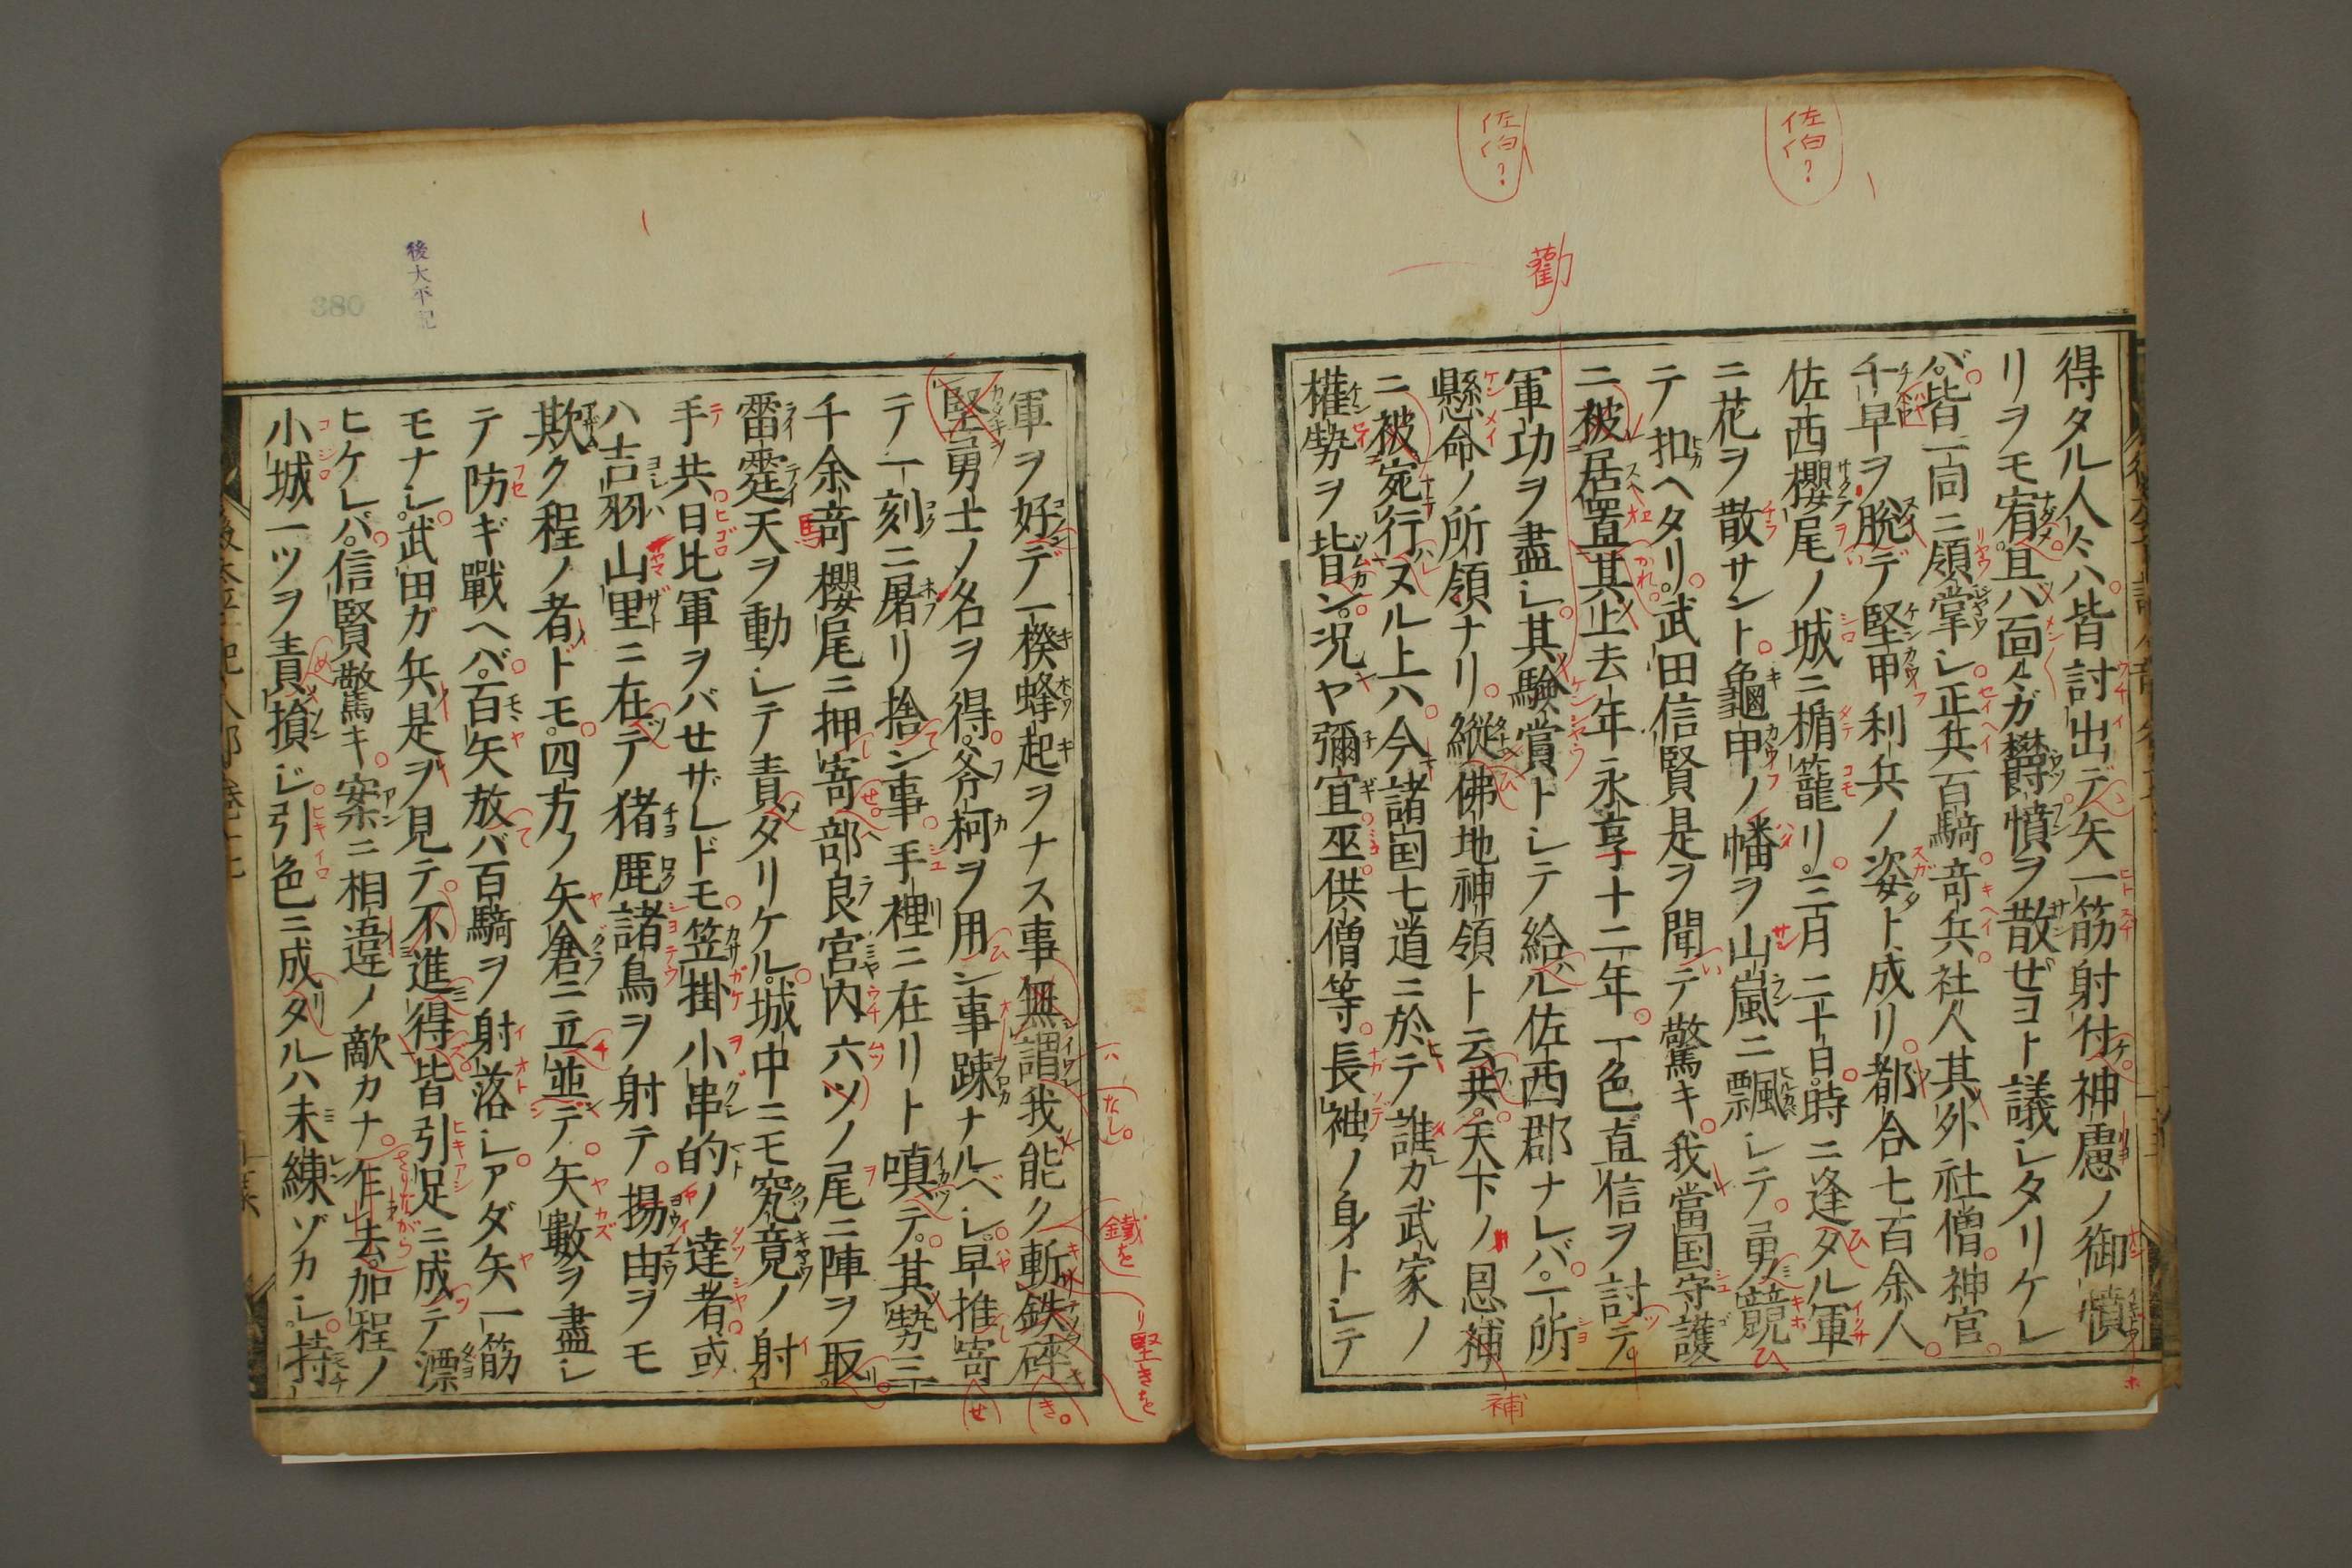 佐伯?
佐伯?
勸
得タル人々ハ皆討出デ矢一筋射付神慮ノ御憤
リヲモ宥且ハ面々ガ欝憤ヲ散ゼヨト議レタリケレ
バ皆一同ニ領掌レ正兵百騎竒兵社人其外社僧神官
千早ヲ脱デ堅甲利兵ノ姿ト成リ都合七百余人
佐西櫻尾ノ城ニ楯籠リ三月二十日時ニ逢タル軍
ニ花ヲ散サント龜甲ノ幡ヲ山嵐ニ飄レテ勇競
テ扣ヘタリ武田信賢是ヲ聞テ驚キ我當国守護
ニ被居置其上去年永享十二年一色直信ヲ討テ
軍功ヲ盡レ其驗賞トレテ給ル佐西郡ナレバ一所
懸命ノ所領ナリ縱佛地神領ト云共天下ノ恩補
ニ被宛行ヌル上ハ今諸国七道ニ於テ誰カ武家ノ
權勢ヲ背ン況ヤ彌宜巫供僧等長袖ノ身トレテ
補
後太平記
380
軍ヲ好デ一揆蜂起ヲナス事無謂我能ク斬鉄砕
堅勇士ノ名ヲ得斧柯ヲ用ン事踈ナルベレ早推寄
テ一刻ニ屠リ捨ン事手裡ニ在リト嗔テ其勢三
千余竒櫻尾ニ押寄部良宮内六ツノ尾ニ陣ヲ取
雷霆天ヲ動レテ責タリケル城中ニモ究竟ノ射
手共日比軍ヲバセザレドモ笠掛小串的ノ達者或
ハ吉羽山里ニ在テ猪鹿諸鳥ヲ射テ揚由ヲモ
欺ク程ノ者ドモ四方ノ矢倉ニ立並テ矢數ヲ盡レ
テ防ギ戰ヘバ百矢放バ百騎ヲ射落レアダ矢一筋
モナレ武田ガ兵是ヲ見テ不進得皆引足ニ成テ漂
ヒケレバ信賢驚キ案ニ相違ノ敵カナ乍去加程ノ
小城一ツヲ責損レ引色ニ成タルハ未練ゾカレ持
ハなし。
鐵を
り堅きを